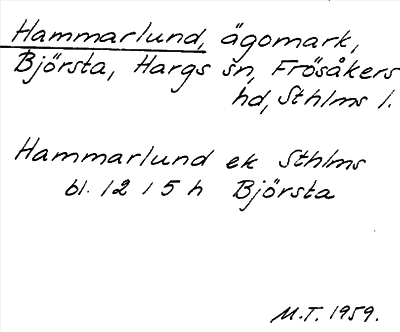 Hammarlund, ägomark,
Björsta, Hargs sn, Frösåkers
hd, Sthlms l.
Hammarlund ek Sthlms
bl. 12 1 5 h Björsta
M.T. 1959.